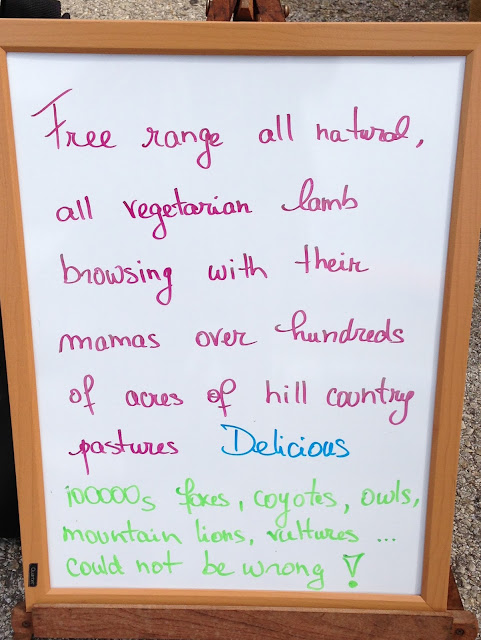 Free range all natural,
all vegetarian lamb
browsing with their
mamas over hundreds
of acres of hill country
pastures Delicious
100000s foxes, coyotes, owls,
mountain lions, vultures ...
could not be wrong !
Quartet